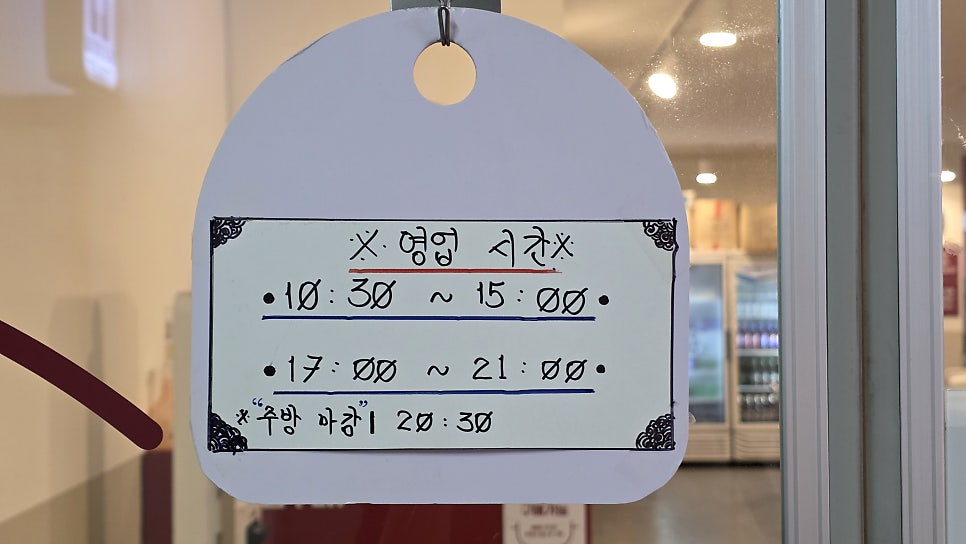 ※ 영업 시간 ※
• 10:30 ~ 15:00 •
• 17:00 ~ 21:00 •
※ "주방 마감" | 20:30